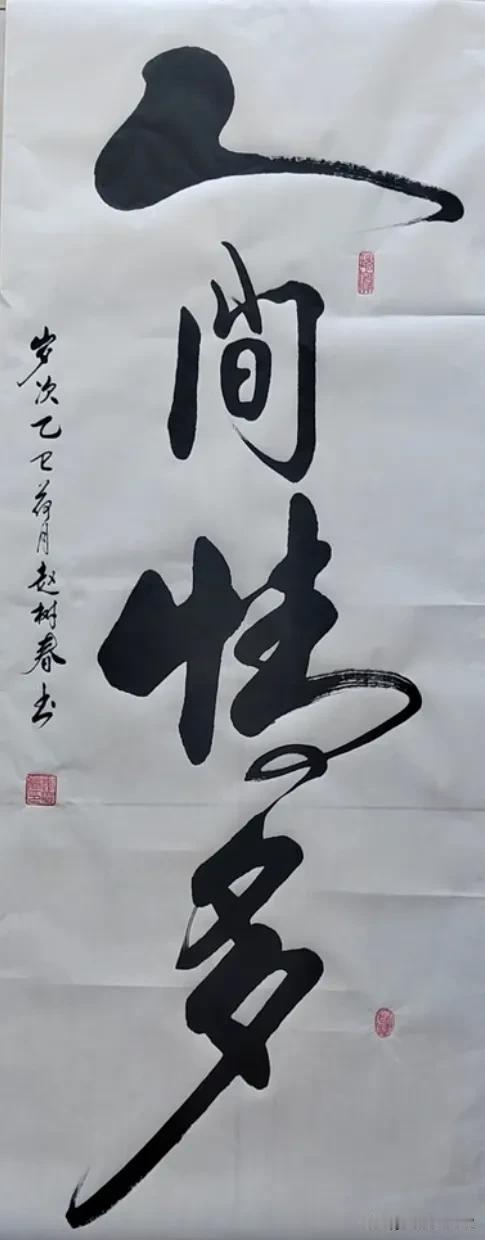 人间情多
岁次乙巳荷月赵树春书